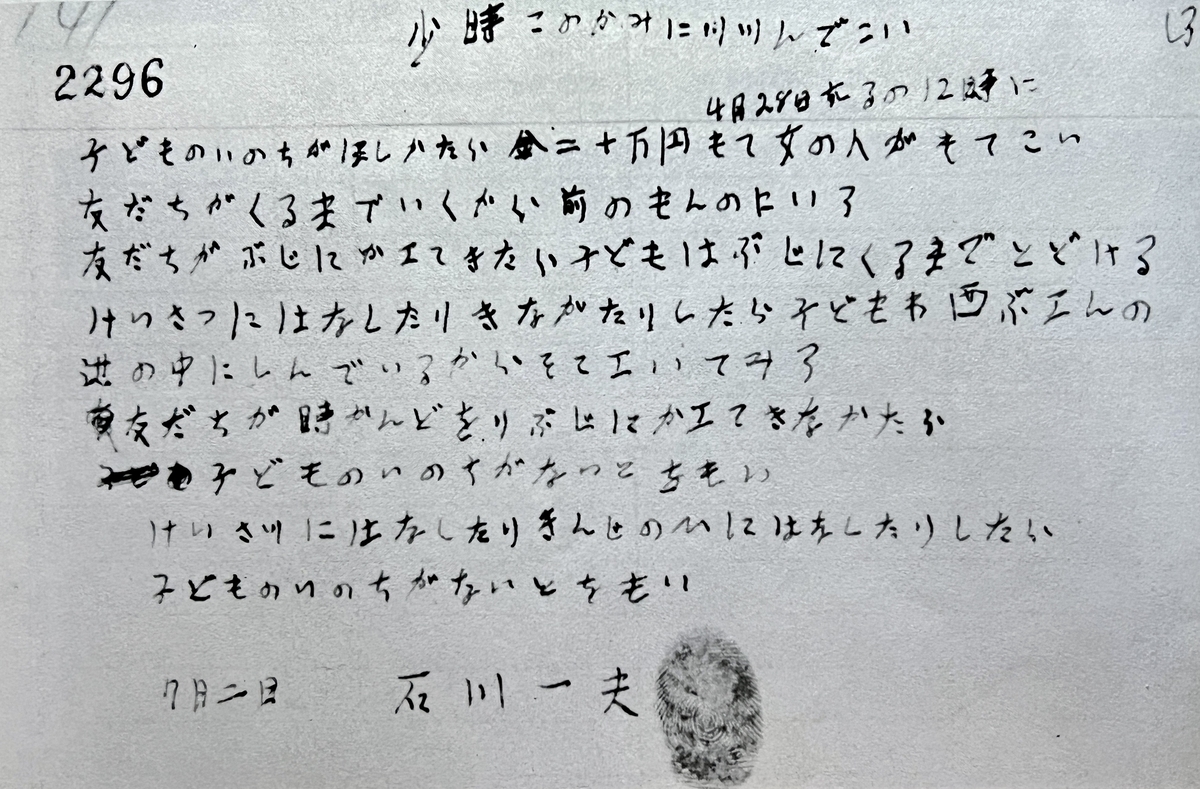 少時 このかみに川川んでこい
2296
4月28日和るの12時に
子どものいのちがほしかたら金二十万円もて女の人がもてこい
友だちがくるまでいくから前のもんのに いろ
友だちがぶじにか江てきたら子どもはぶじにくるまでとどける
けいさつにはなしたりきながたりしたら子どもわ西ぶ江んの
の中にしんでいるからそこ江いてみろ
友だちが時かんどをりぶじにか江てきなかたら
子どものいのちがないとをもい
けいさ川にはなしたりきんじの人にはなしたりしたら
子どものいのちがないとをもい
7月二日 石川一夫